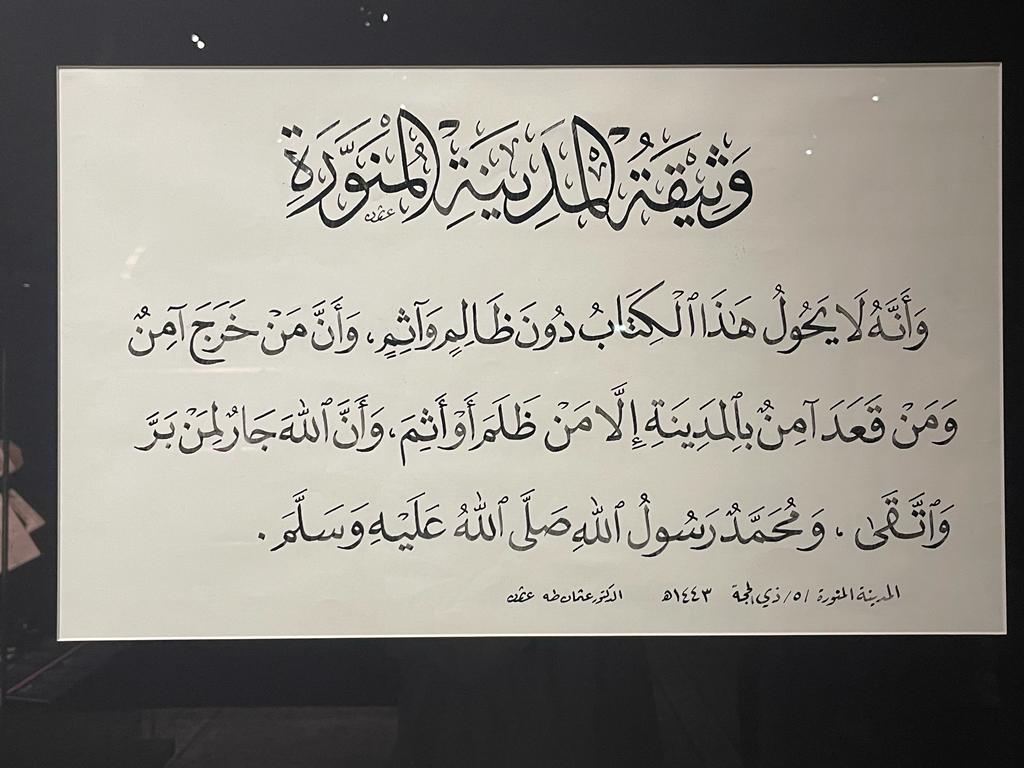 وَثِيقَةُ المَدِينَةِ المُنَوَّرَةِ
عثمان
وَأَنَّهُ لَا يَحُولُ هَٰذَا ٱلْكِتَابُ دُونَ ظَالِمٍ وَآثِمٍ، وَأَنَّ مَنْ خَرَجَ آمِنٌ
وَمَنْ قَعَدَ آمِنٌ بِٱلْمَدِينَةِ إِلَّا مَنْ ظَلَمَ أَوْ أَثِمَ، وَأَنَّ ٱللهَ جَارٌ لِمَنْ بَرَّ
وَٱتَّقَىٰ ، وَمُحَمَّدٌ رَسُولُ ٱللهِ صَلَّى ٱللهُ عَلَيْهِ وَسَلَّمَ .
المدينة المنورة /٥/ ذي الحجة ١٤٤٣هـ الدكتور عثمان طه عثمان